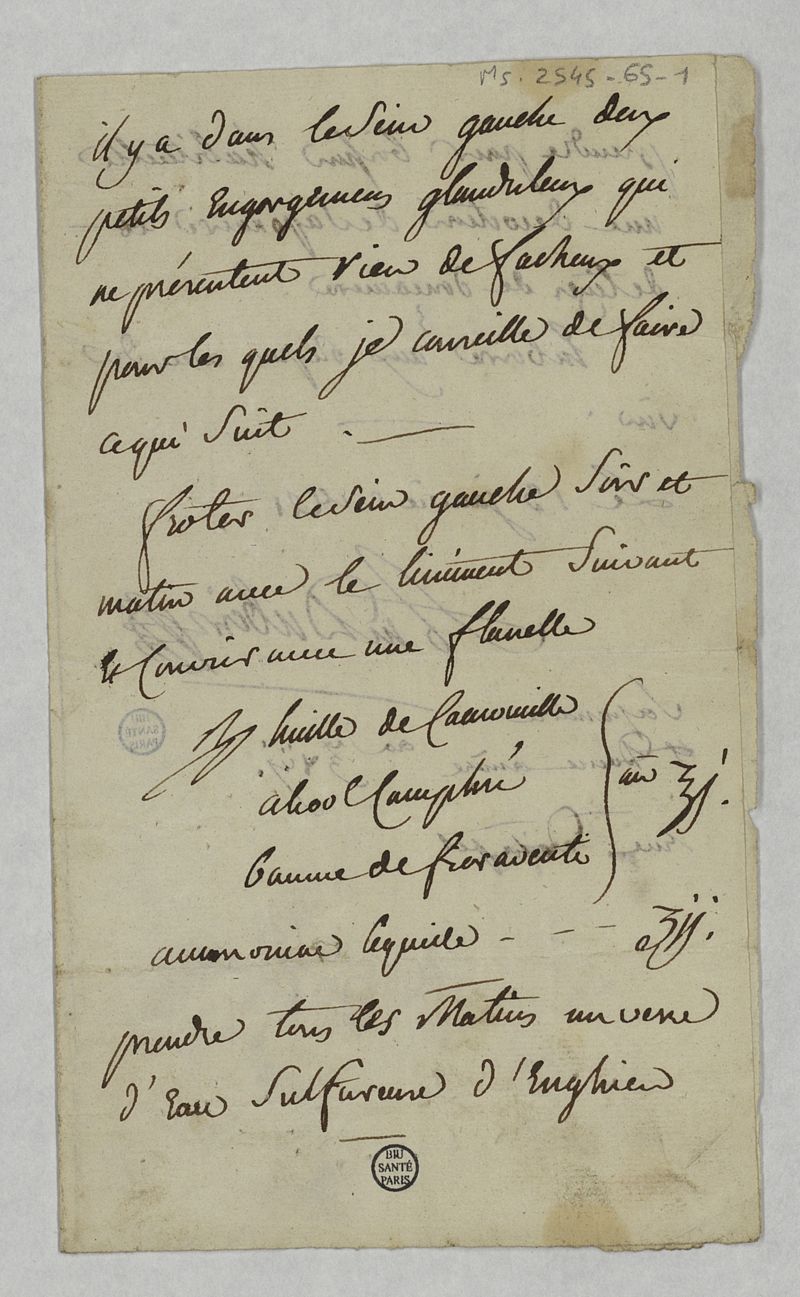 Ms. 2545-65-1
il y a dans le Sein gauche deux
petits Engorgemens glanduleux qui
ne présentent rien de facheux et
pour les quels je conseille de faire
ce qui Suit . —
froter le Sein gauche Soir et
matin avec le liniment Suivant
et Couvrir avec une flanelle
℞ huille de Camomille
alcool Camphré } aa ʒj.
baume de fioraventi
ammoniac liquide - - - ʒjj.
prendre tous les Matins un verre
d'Eau Sulfureuse d'Enghien
BIU
SANTÉ
PARIS